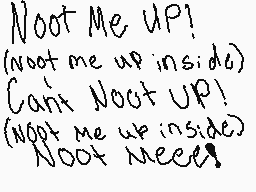 Noot Me UP!
(Noot me up inside)
Can't Noot UP!
(Noot Me up inside)
Noot Meee!